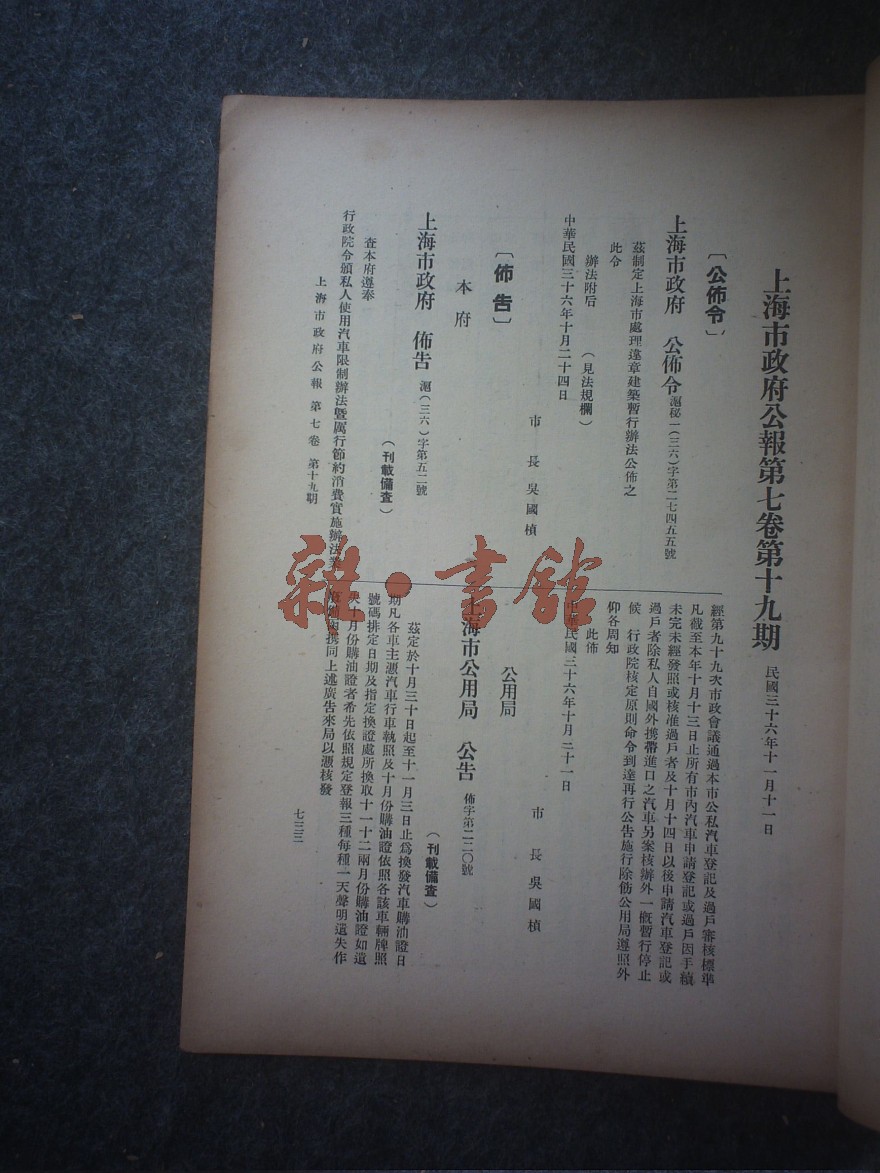 上海市政府公報第七卷第十九期 民國三十六年十一月十一日
〔公佈令〕
上海市政府 公佈令 滬秘一(三六)字第二七四五五號
茲制定上海市處理違章建築暫行辦法公佈之
此令
辦法附后 (見法規欄)
中華民國三十六年十月二十四日
市長吳國楨
〔佈告〕
本府
上海市政府 佈告 滬(三六)字第五二號
(刊載備查)
查本府遵奉
行政院令頒私人使用汽車限制辦法暨厲行節約消費實施辦法
經第九十九次市政會議通過本市公私汽車登記及過戶審核標準
凡截至本年十月十三日止所有市內汽車申請登記或過戶因手續
未完未經發照或核准過戶者及十月十四日以後申請汽車登記或
過戶者除私人自國外携帶進口之汽車另案核辦外一概暫行停止
候 行政院核定原則命令到達再行公告施行除飭公用局遵照外
仰各周知
此佈
中華民國三十六年十月二十一日
市長吳國楨
公用局
上海市公用局 公告 佈字第二二〇號
(刊載備查)
茲定於十月三十日起至十一月三日止爲換發汽車購油證日
期凡各車主憑汽車行車執照及十月份購油證依照各該車輛牌照
號碼排定日期及指定換證處所換取十一十二兩月份購油證如遺
失十月份購油證者希先依照規定登報三種每種一天聲明遺失作
携同上述廣告來局以憑核發
上海市政府公報 第七卷 第十九期
七三三
雜·書館